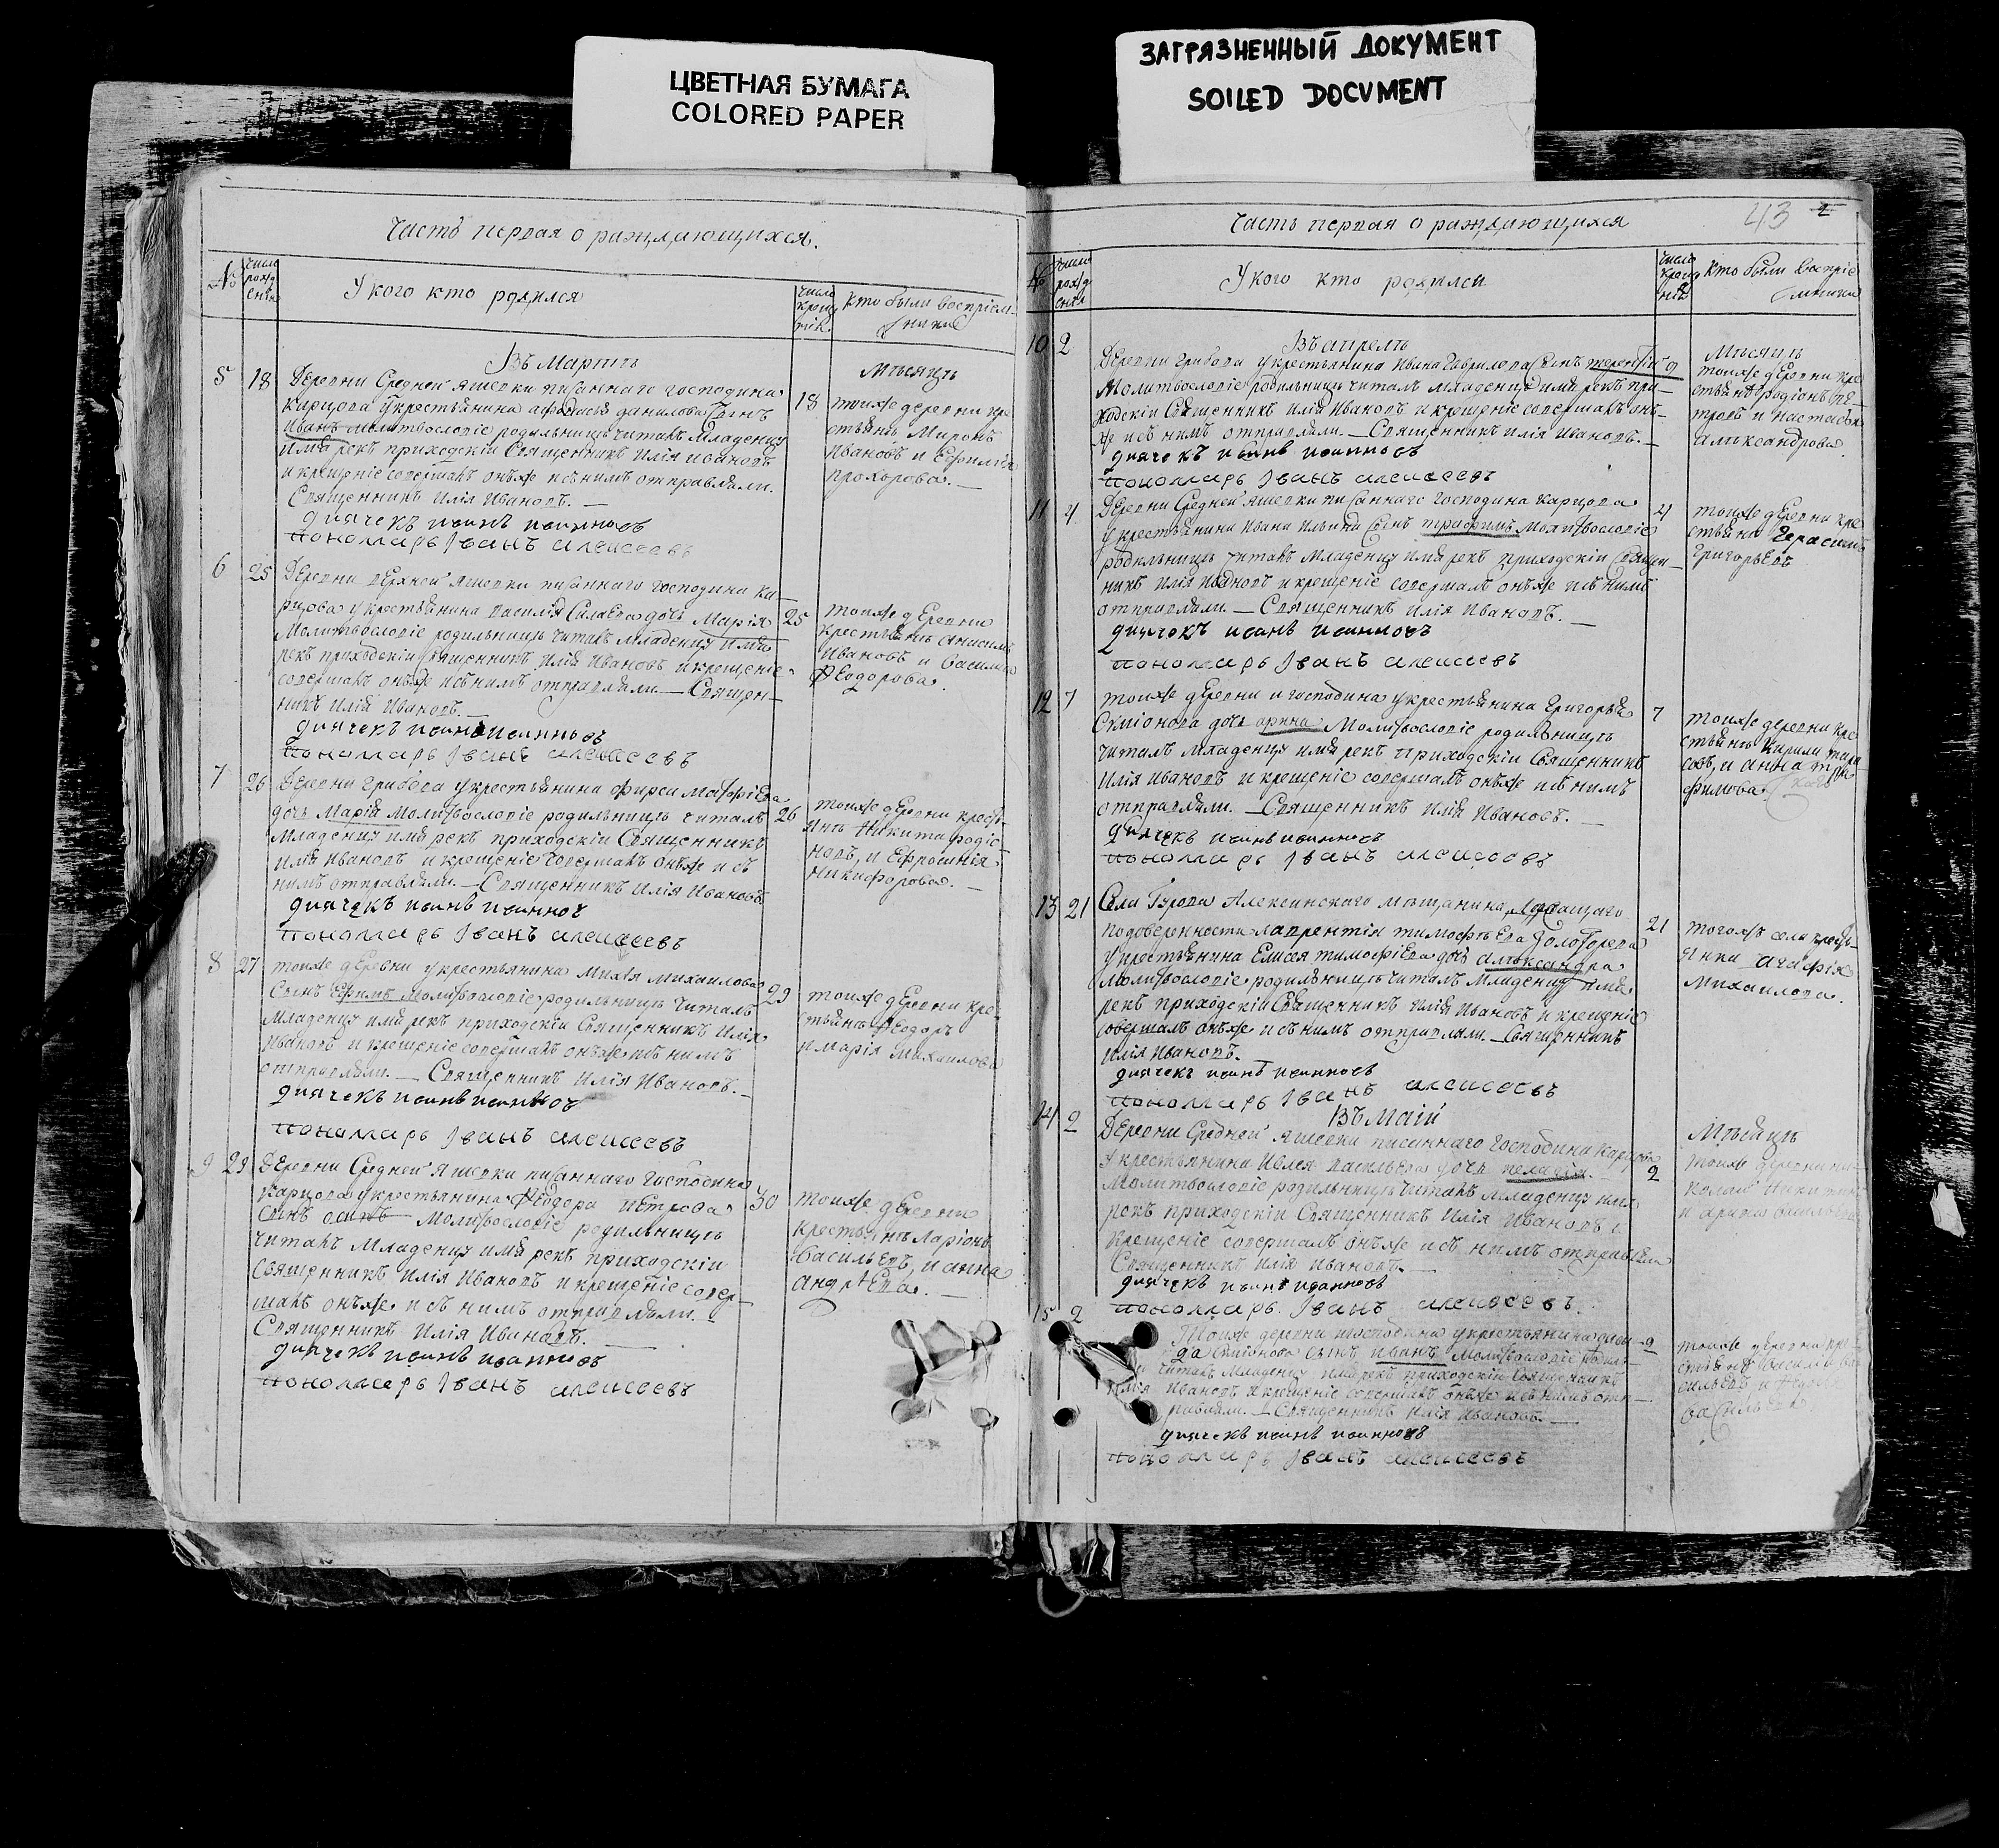 ЦВЕТНАЯ БУМАГА
COLORED PAPER
ЗАГРЯЗНЕННЫЙ ДОКУМЕНТ
SOILED DOCUMENT
Часть первая о раждающихся.
№
число рожденія
У кого кто родился
число крещенія
Кто были воспріемники
Въ Мартѣ
Мѣсяцѣ
5 18
Деревни Средней Яшевки писаннаго господина
Карцова у крестьянина Афонасья Данилова сынъ
Иванъ Молитвословіе родильницѣ читалъ Младенцу
имя рекъ приходскій Священникъ Илія Ивановъ
и крещеніе совершалъ онъже и съ нимъ отправляли.
Священникъ Илія Ивановъ. —
дьячекъ иванъ иванновъ
пономарь Іванъ алексеевъ
18
тойже деревни кре
стьянъ Миронъ
Ивановъ и
прохорова. —
6 25
Деревни верхней Яшевки писаннаго господина Ка-
рцова у крестьянина Василія дочь Марія
Молитвословіе родильницѣ читалъ младенцу имя
рекъ приходскій священникъ Илія Ивановъ и крещеніе
совершалъ онъже и съ нимъ отправляли. — Священ-
никъ Илія Ивановъ. —
дьячекъ иванъ иванновъ
пономарь Іванъ алексеевъ
25
тойже деревни
крестьянъ Анисимъ
Ивановъ и Василиса
Феодорова.
7 26
Деревни Грибова у крестьянина Фирса Матфіева
дочь Марія Молитвословіе родильницѣ читалъ
Младенцу имя рекъ приходскій Священникъ
Илія Ивановъ и крещеніе совершалъ онъже и съ
нимъ отправляли. — Священникъ Илія Ивановъ
дьячекъ иванъ иванновъ
пономарь Іванъ алексеевъ
26
тойже деревни кресть
янъ Никита Родіо
новъ, и Ефросинія
Никифорова. —
8 27
тойже деревни у крестьянина Михаилова
сынъ Ефимъ Молитвословіе родильницѣ читалъ
Младенцу имя рекъ приходскій Священникъ Илія
Ивановъ и крещеніе совершалъ онъже и съ нимъ
отправляли. — Священникъ Илія Ивановъ. —
дьячекъ иванъ иванновъ
пономарь Іванъ алексеевъ
29
тойже деревни кре
стьянъ Феодоръ
и Марія Михаилова
9 29
Деревни Средней Яшевки писаннаго господина
Карцова у крестьянина Феодора Петрова
сынъ осипъ Молитвословіе родильницѣ
читалъ Младенцу имя рекъ приходскій
священникъ Илія Ивановъ и крещеніе совер-
шалъ онъже и съ нимъ отправляли. —
Священникъ Илія Ивановъ.
дьячекъ иванъ иванновъ
пономарь Іванъ алексеевъ
30
тойже деревни
крестьянъ Ларіонъ
Васильевъ, и анна
андрѣева. —
43
Часть первая о раждающихся
№
число рожденія
У кого кто родился
число крещенія
Кто были воспріемники
Въ апрелѣ
Мѣсяцѣ
10 2
Деревни Грибова у крестьянина Ивана Гаврилова сынъ терентій
Молитвословіе родильницѣ читалъ младенцу имя рекъ при-
ходскій Священникъ Илія Ивановъ и крещеніе совершалъ онъ-
же и съ нимъ отправляли. — Священникъ Илія Ивановъ. —
дьячекъ иванъ иванновъ
пономарь Іванъ алексеевъ
тойже деревни кре
стьянъ Родіонъ Пе-
тровъ и
александрова.
11 4
Деревни Средней Яшевки писаннаго господина Карцова
у крестьянина Ивана Ильина сынъ трифимъ Молитвословіе
родильницѣ читалъ младенцу имя рекъ приходскій священ-
никъ Илія Ивановъ и крещеніе совершалъ онъже и съ нимъ
отправляли. — Священникъ Илія Ивановъ. —
дьячекъ иванъ иванновъ
пономарь Іванъ алексеевъ
4
тойже деревни кре
стьянъ Герасимъ
Григорьевъ
12 7
тойже деревни и господина у крестьянина Григорья
Симіонова дочь арина Молитвословіе родильницѣ
читалъ младенцу имя рекъ приходскій Священникъ
Илія Ивановъ и крещеніе совершалъ онъже и съ нимъ
отправляли. — Священникъ Илія Ивановъ. —
дьячекъ иванъ иванновъ
пономарь Іванъ алексеевъ
7
тойже деревни кре
стьянъ Кирила
и анна тра
фимова
13 21
Села Алексинскаго мѣщанина
по доверенности Лаврентія тимофѣева Золотарева
у крестьянина Елисея тимофіева дочь александра
молитвословіе родильницѣ читалъ Младенцу имя
рекъ приходскій Священникъ Илія Ивановъ и крещеніе
совершалъ онъже и съ нимъ отправляли. — Священникъ
Илія Ивановъ.
дьячекъ иванъ иванновъ
пономарь Іванъ алексеевъ
21
тогожъ села кресть-
янка агафія
Михаилова.
Въ Маій
Мѣсяцѣ
14 2
Деревни Средней Яшевки писаннаго господина Карцова
у крестьянина Васильева дочь пелагія
Молитвословіе родильницѣ читалъ Младенцу имя
рекъ приходскій Священникъ Илія Ивановъ и
крещеніе совершалъ онъже и съ нимъ отправляли
Священникъ Илія Ивановъ. —
дьячекъ иванъ иванновъ
пономарь Іванъ алексеевъ.
2
тойже деревни ни-
колай Никитинъ
и арина
15 2
Тойже деревни и господина у крестьянина
Симіонова сынъ иванъ Молитвословіе
читалъ Младенцу имя рекъ приходскій Священникъ
Илія Ивановъ и крещеніе совершалъ онъже и съ нимъ отп-
равляли. — Священникъ Илія Ивановъ. —
дьячекъ иванъ иванновъ
пономарь Іванъ алексеевъ
тойже деревни кре-
стьянъ Ва
сильевъ и
васильева